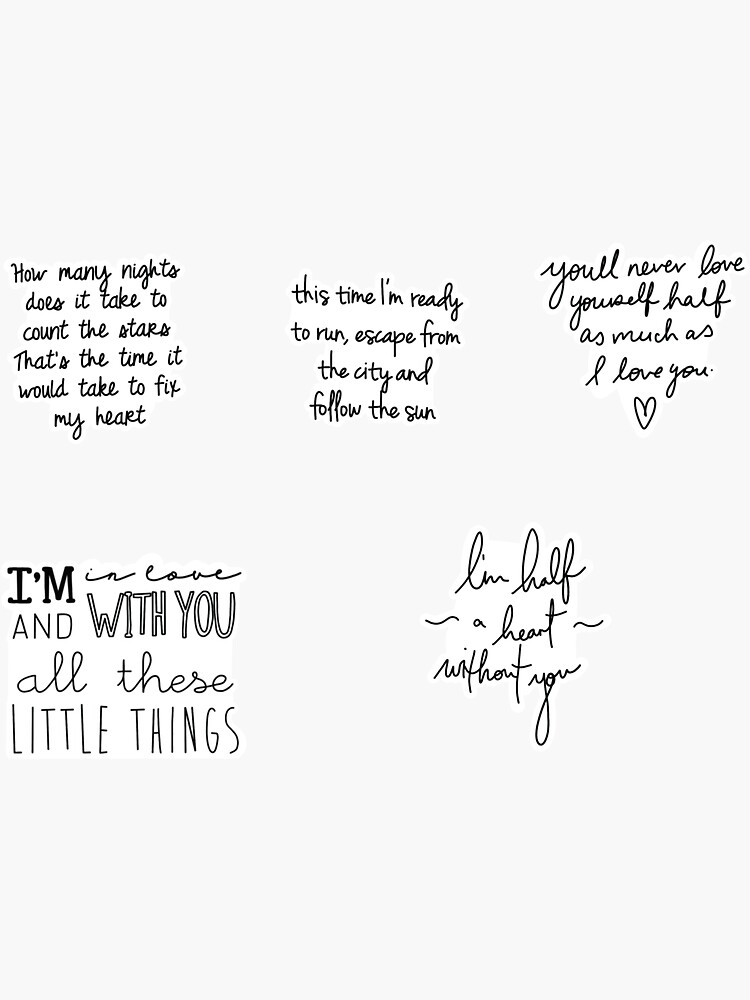 How many nights
does it take to
count the stars
That's the time it
would take to fix
my heart
this time I'm ready
to run, escape from
the city and
follow the sun
you'll never love
yourself half
as much as
I love you.
I'M in love
AND WITH YOU
all these
LITTLE THINGS
I'm half
~ a heart ~
without you